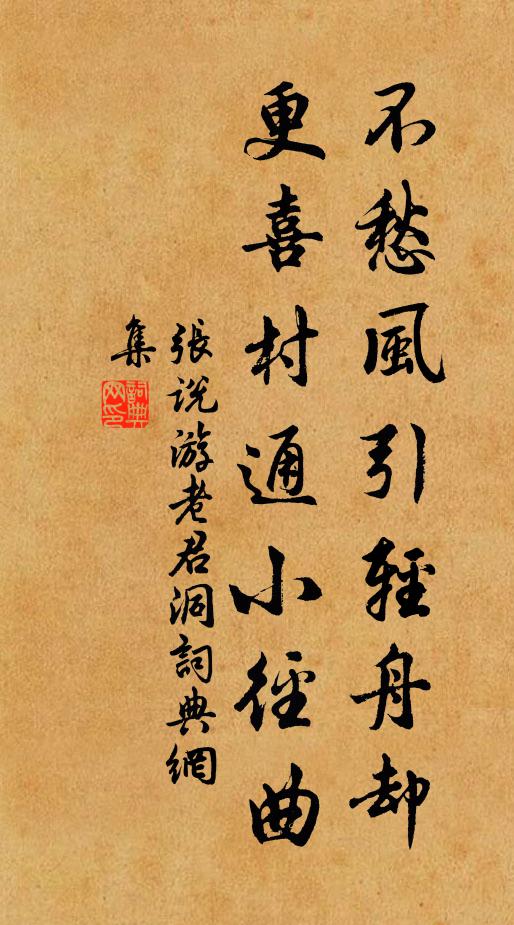 不愁風引輕舟却
更喜村通小徑曲
張説游老君洞詞典網
集
詞典
網印